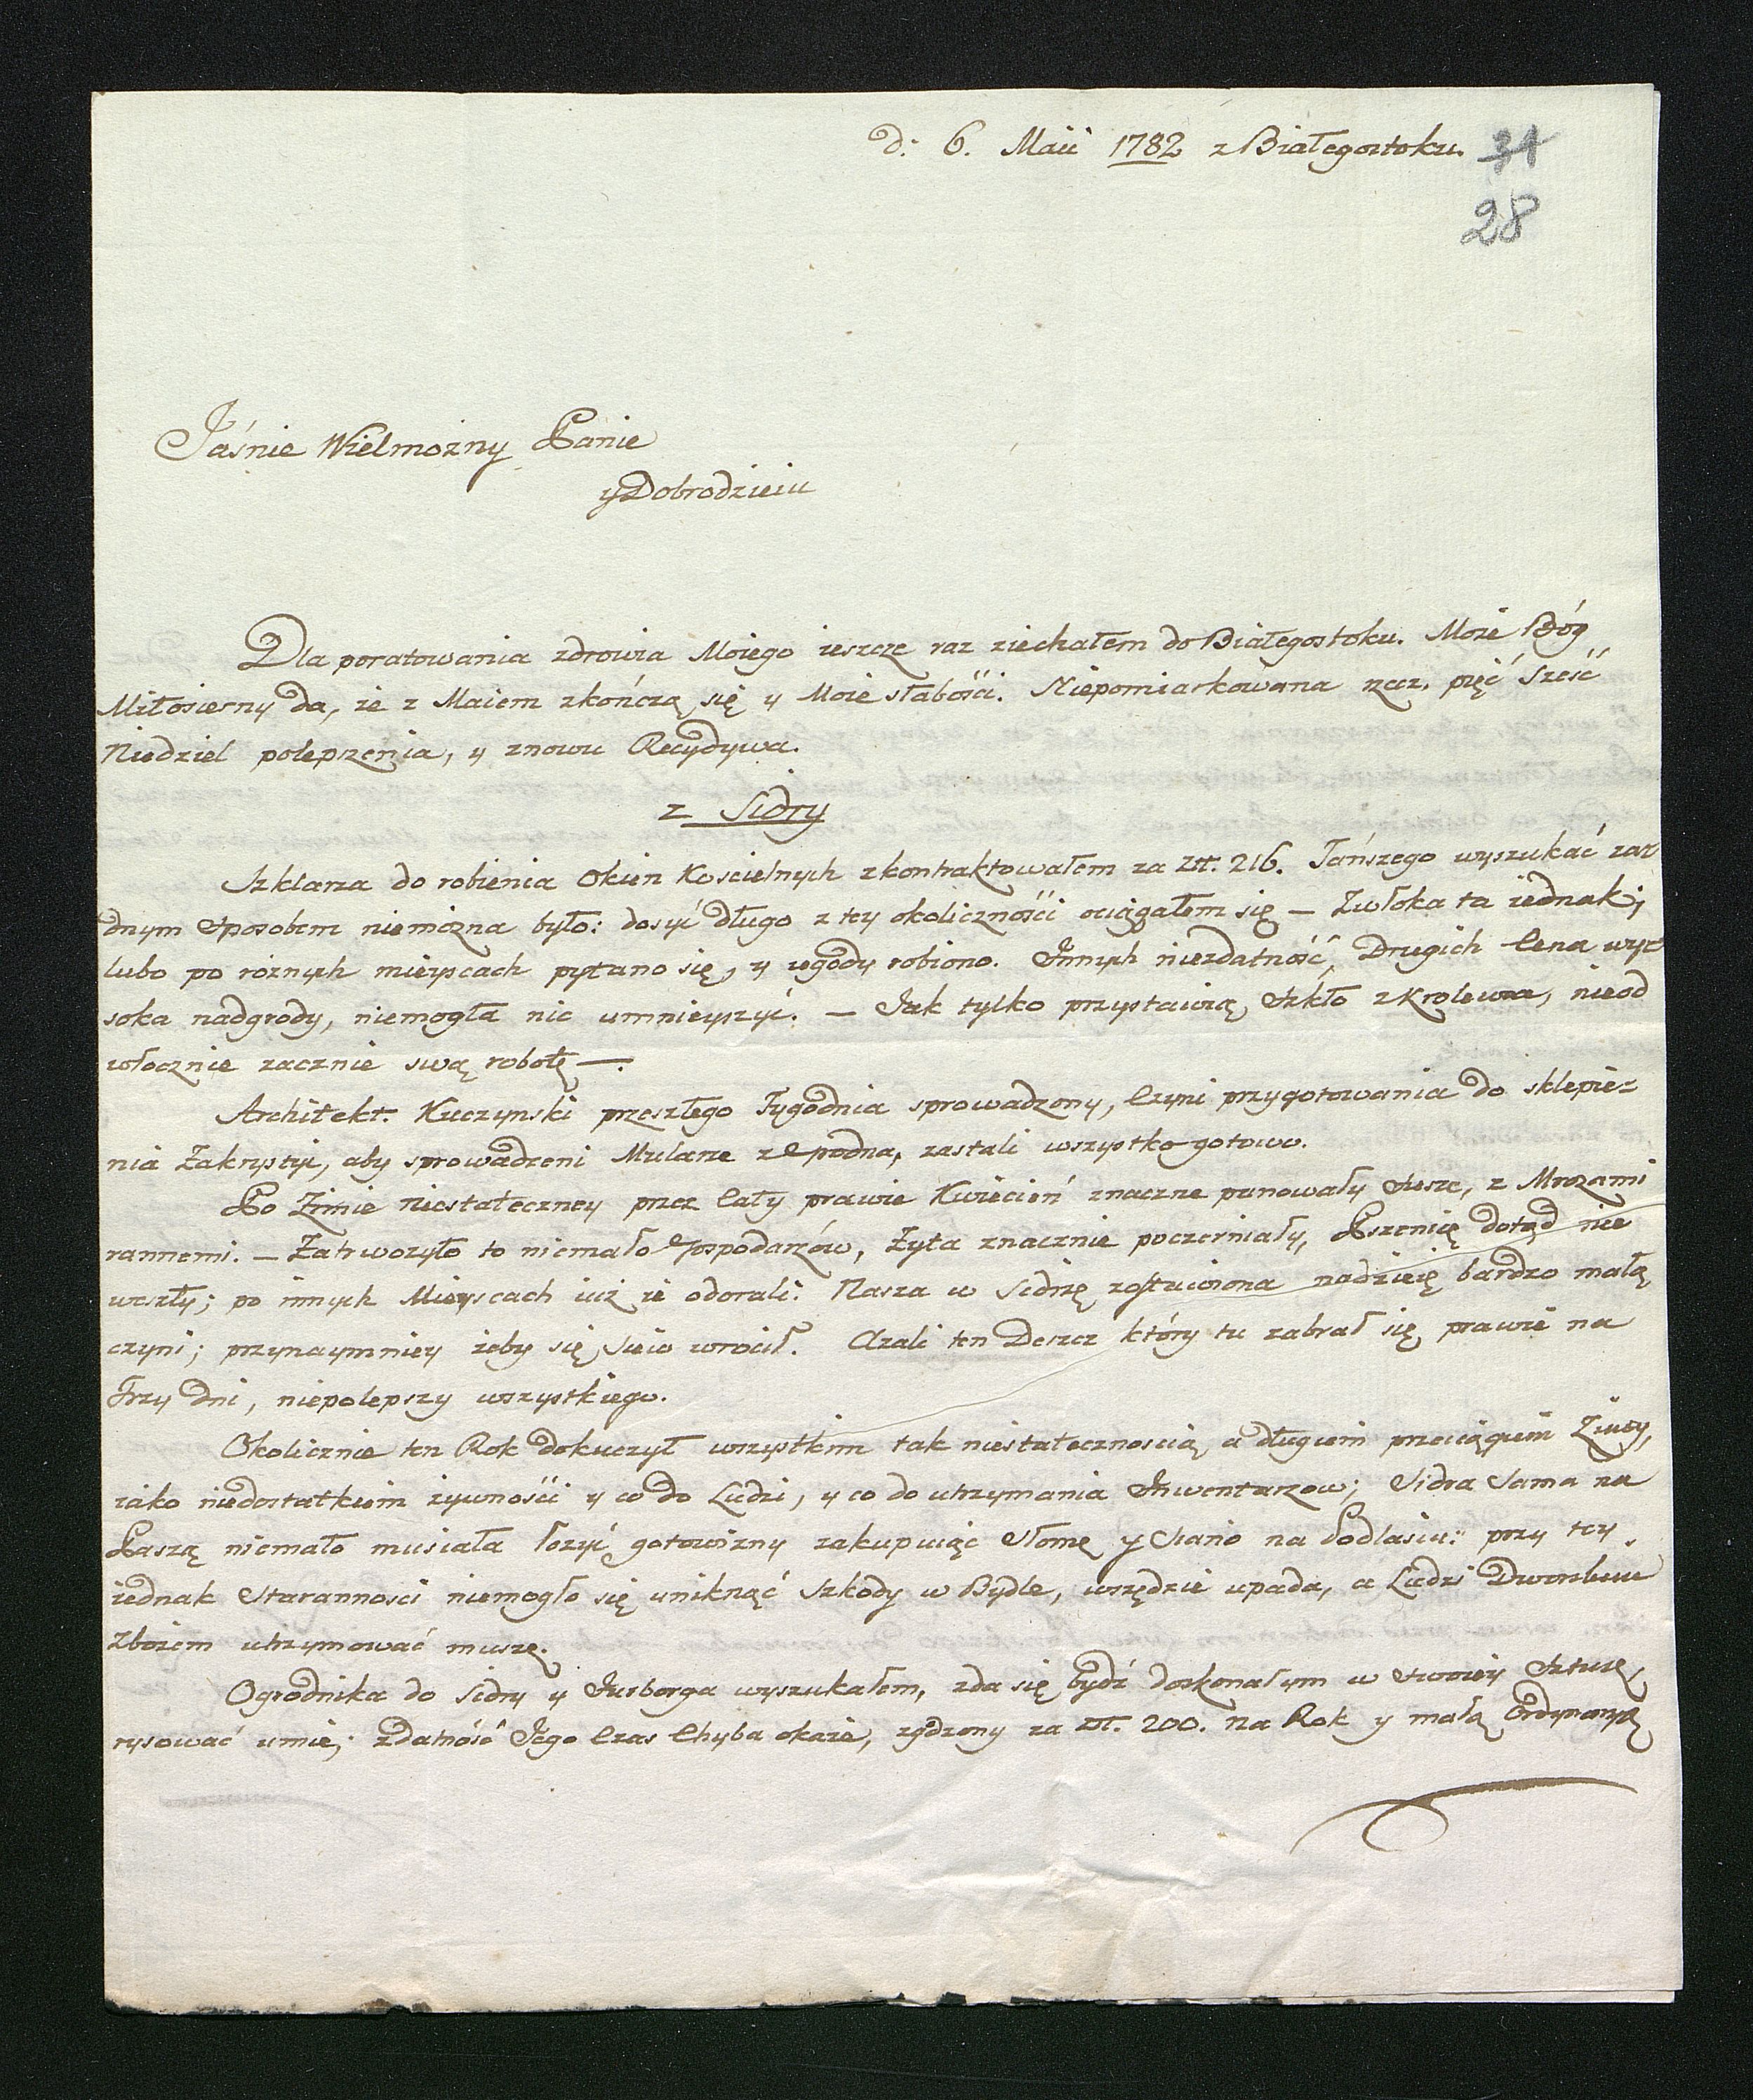 d: 6. Maii 1782 z Białegostoku. 31
28
Jaśnie Wielmożny Panie
y Dobrodzieiu
Dla poratowania zdrowia Moiego ieszcze raz ziechałem do Białegostoku. Może Bóg
Miłosierny da, że z Maiem zkończą się y Moie słabości. Niepomiarkowana rzecz, pięć Sześć
Niedziel polepszenia, y znowu Recydywa.
z Sidry
Szklarza do robienia Okien Kościelnych zkontraktowałem za Złt. 216. Tańszego wyszukać żad
dnym Sposobem niemożna było: dosyć długo z tey okoliczności ociągałem się — Zwłoka ta iednak,
lubo po rożnych mieyscach pytano się, y ugody robiono. Innych niezdatność, Drugich Cena wys
soka nadgrody, niemogła nic umnieyszyć. — Jak tylko przystawią Szkło z Krolewca, nieod
włocznie zacznie swą robotę —.
Architekt. Kuczynski przeszłego Tygodnia sprowadzony, Czyni przygotowania do sklepie=
nia Zakrystyi, aby sprowadzeni Mularze z Grodna, zastali wszystko gotowo.
Po Zimie niestateczney przez Cały prawie Kwiecień znaczne panowały Susze, z Mrozami
rannemi. — Zatrwożyło to niemało Gospodarzów, Żyta znacznie poczerniały, Pszenicę dotąd nie
weszły; po innych Mieyscach iuż ie odorali: Nasza w Sidrze zostawiona nadzieię bardzo małą
czyni; przynaymniey żeby się Siew wrocił. Azali ten Deszcz który tu zabrał się prawie na
Trzy dni, niepolepszy wszystkiego.
Okolicznie ten Rok dokuczył wszystkim tak niestatecznością, a długiem przeciągiem Zimy,
iako niedostatkiem żywności y co do Ludzi, y co do utrzymania Inwentarzow; Sidra Sama na
Paszą niemało musiała łożyć gotowizny zakupuiąc Słomę y Siano na Podlasiu: przy tey
iednak Staranności niemogło się uniknąć Szkody w Bydle, wszędzie upada, a Ludzi Dworskim
Zbożem utrzymować muszę.
Ogrodnika do Sidry y Jurborga wyszukałem, zda się bydź doskonałym w Swoiey Sztuce,
rysować umie; zdatność Jego Czas Chyba okaże, zgodzony za Złt. 200. na Rok y małą Ordynaryą